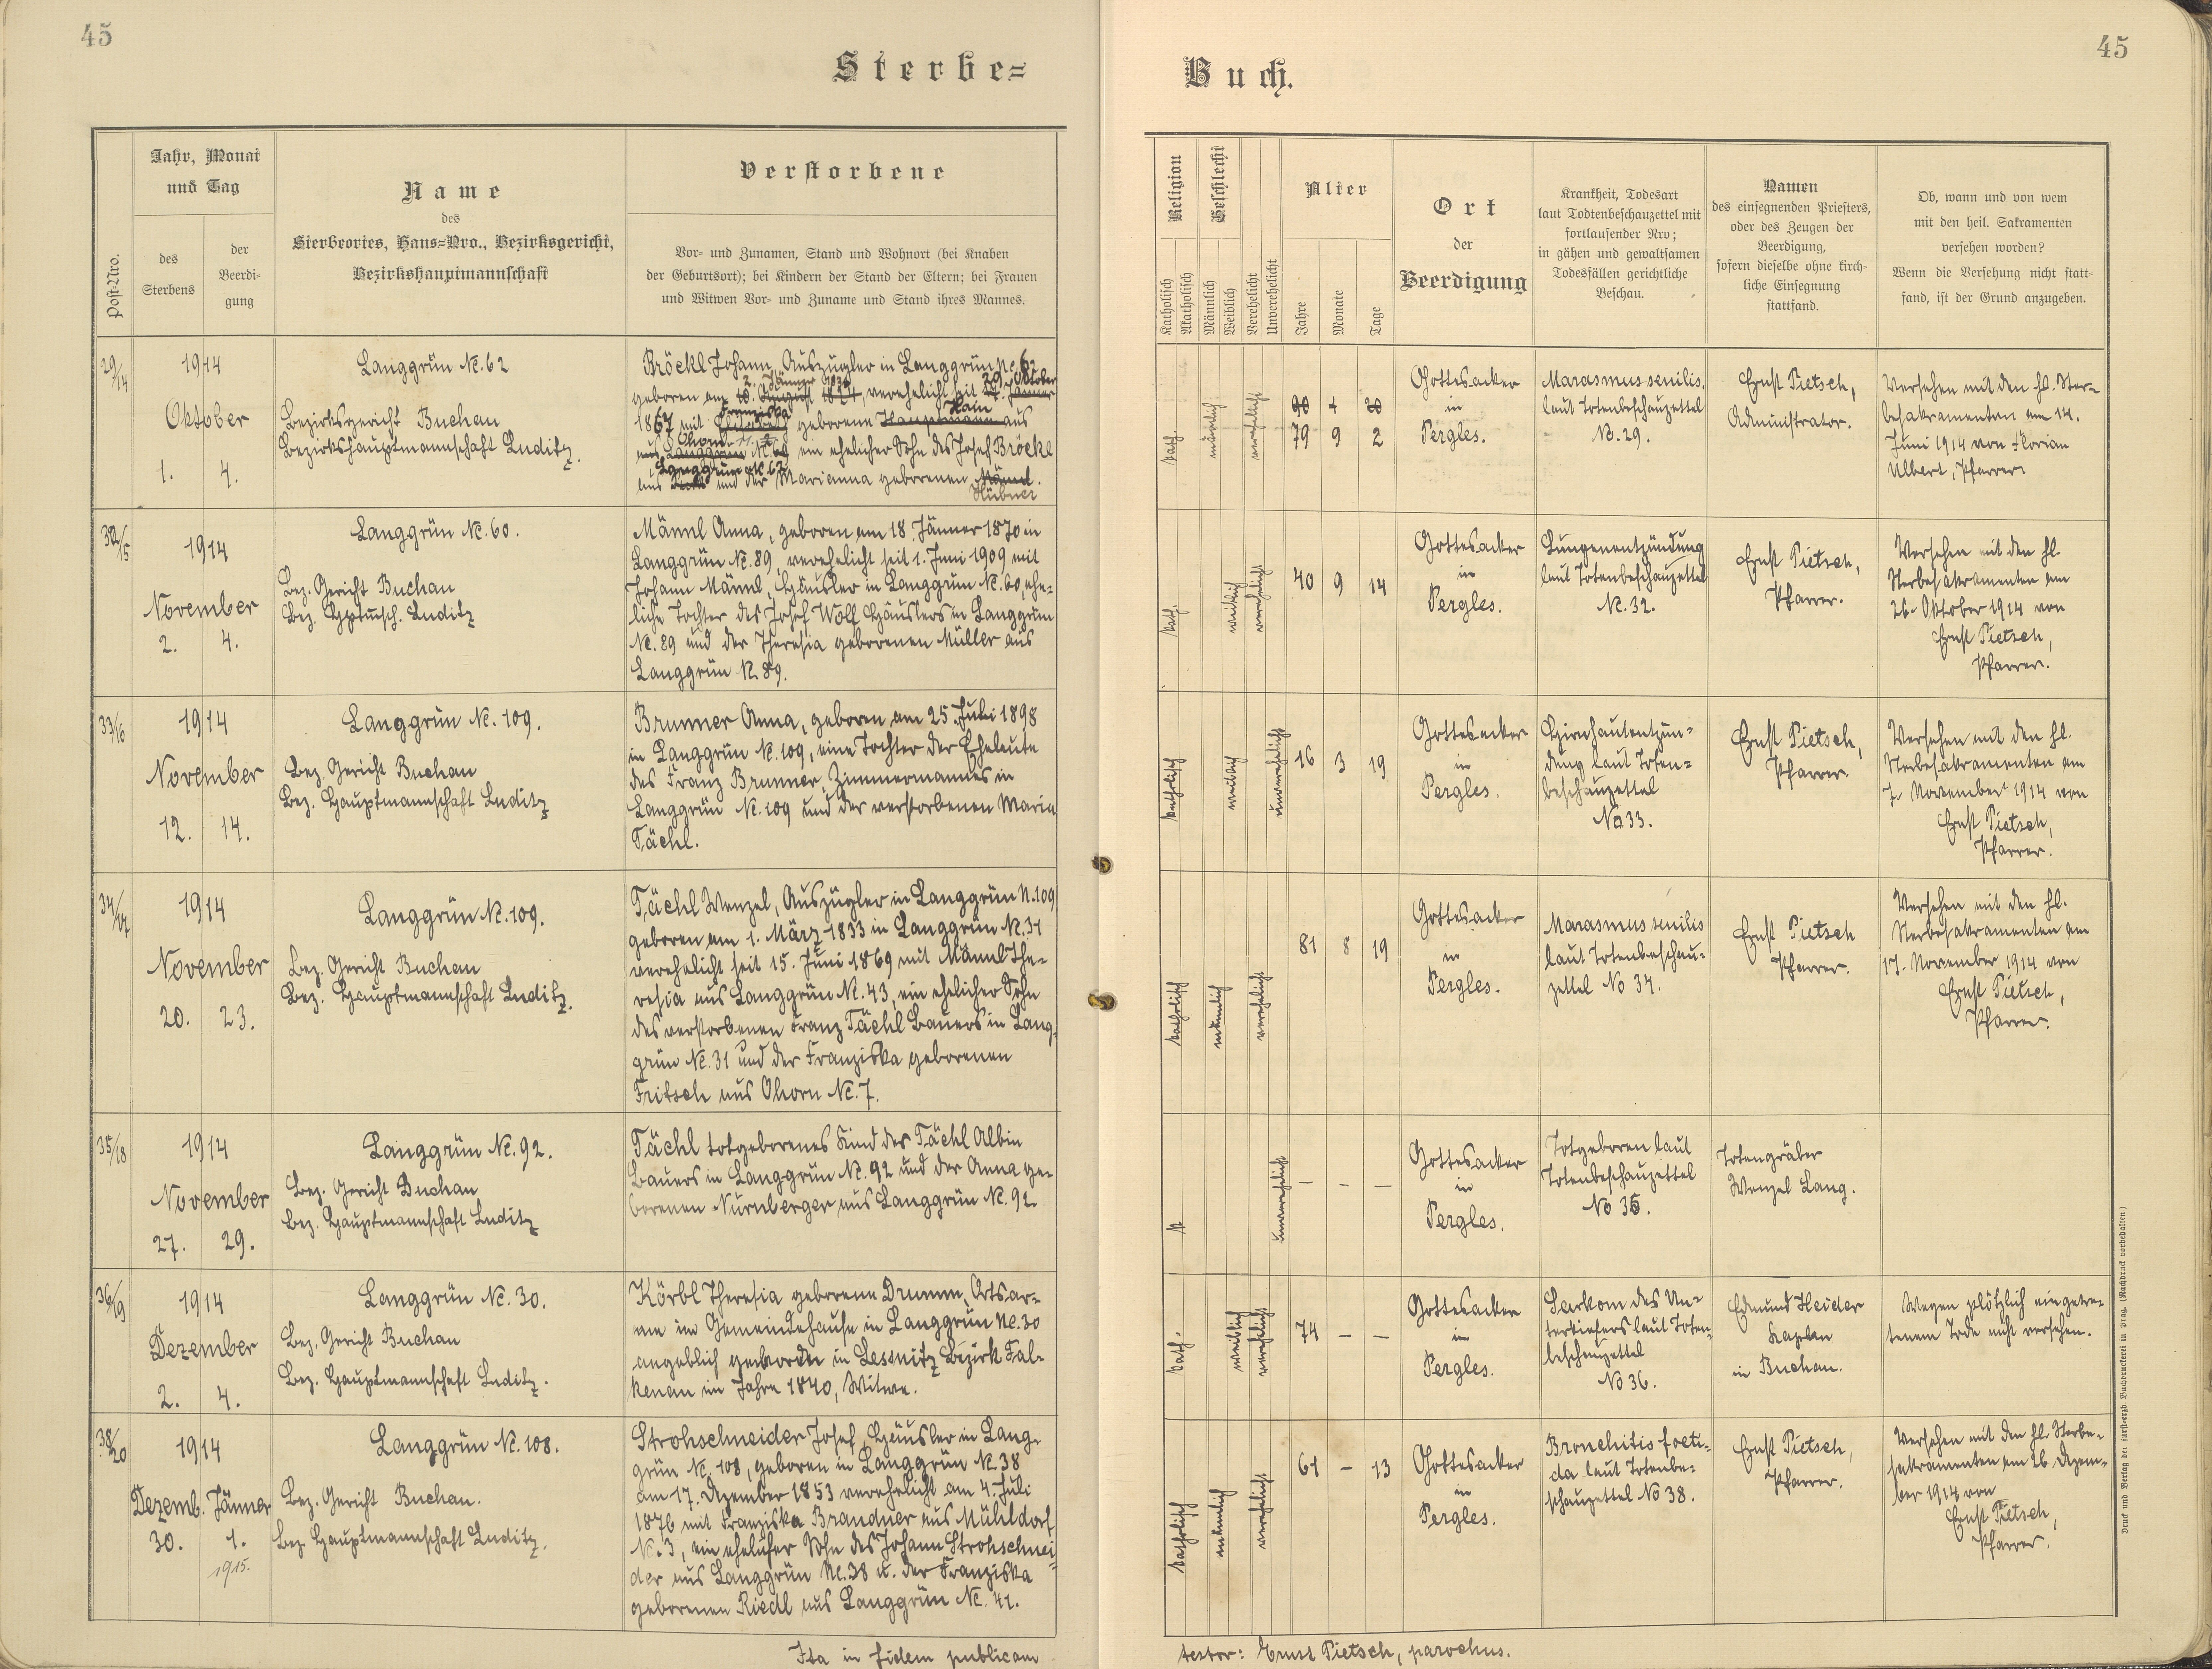 45
Sterbe=
Post-Nro.
Jahr, Monat
und Tag
des
Sterbens
der
Beerdi-
gung
Name
des
Sterbeortes, Haus=Nro., Bezirksgericht,
Bezirkshauptmannschaft
Verstorbene
Vor- und Zunamen, Stand und Wohnort (bei Knaben
der Geburtsort); bei Kindern der Stand der Eltern; bei Frauen
und Witwen Vor- und Zuname und Stand ihres Mannes.
29/14
1914
Oktober
1. 4.
Langgrün Nr. 62
Bezirksgericht Buchau
Bezirkshauptmannschaft Luditz.
Bröckl Johann, Auszügler in Langgrün Nr. 62
2. Jänner 29. Oktober
geboren am 10. August 1824, verehelicht seit Jänner
Franziska Hain
1867 mit Elisabeth geborene Hauptmann aus
Ohorn
aus Langgrün ein ehelicher Sohn des Josef Bröckl
Langgrün Nr. 62
aus und der Marianna geborenen Männl.
Hübner
32/15
1914
November
2. 4.
Langgrün Nr. 60.
Bez. Gericht Buchau
Bez. Hptmsch. Luditz
Männl Anna, geboren am 18. Jänner 1870 in
Langgrün Nr. 89, verehelicht seit 1. Juni 1909 mit
Johann Männl, Häusler in Langgrün Nr. 60, ehe-
liche Tochter des Josef Wolf Häuslers in Langgrün
Nr. 89 und der Theresia geborenen Müller aus
Langgrün Nr. 89.
33/16
1914
November
12. 14.
Langgrün Nr. 109.
Bez. Gericht Buchau
Bez. Hauptmannschaft Luditz
Brunner Anna, geboren am 25. Juli 1898
in Langgrün Nr. 109, eine Tochter der Eheleute
des Franz Brunner, Zimmermannes in
Langgrün Nr. 109 und der verstorbenen Maria
Tächl.
34/17
1914
November
20. 23.
Langgrün Nr. 109.
Bez. Gericht Buchau
Bez. Hauptmannschaft Luditz.
Tächl Wenzel, Auszügler in Langgrün N. 109
geboren am 1. März 1833 in Langgrün Nr. 31
verehelicht seit 15. Juni 1869 mit Männl The-
resia aus Langgrün Nr. 43, ein ehelicher Sohn
des verstorbenen Franz Tächl Bauers in Lang-
grün Nr. 31 und der Franziska geborenen
Fritsch aus Ohorn Nr. 7.
35/18
1914
November
27. 29.
Langgrün Nr. 92.
Bez. Gericht Buchau
Bez. Hauptmannschaft Luditz
Tächl totgeborenes Kind des Tächl Albin
Bauers in Langgrün Nr. 92 und der Anna ge-
borenen Nürnberger aus Langgrün Nr. 92.
36/19
1914
Dezember
2. 4.
Langgrün Nr. 30.
Bez. Gericht Buchau
Bez. Hauptmannschaft Luditz.
Körbl Theresia geborene Drumm, Ortsar-
me im Gemeindehause in Langgrün Nr. 30
angeblich geboren in Lessnitz Bezirk Fal-
kenau im Jahre 1840, Witwe.
38/20
1914
Dezemb. Jänner
30. 1.
1915.
Langgrün Nr. 108.
Bez. Gericht Buchau.
Bez. Hauptmannschaft Luditz.
Strohschneider Josef, Häusler in Lang-
grün Nr. 108, geboren in Langgrün Nr. 38
am 17. Dezember 1853 verehelicht am 4. Juli
1876 mit Franziska Brandner aus Mühldorf
Nr. 3, ein ehelicher Sohn des Johann Strohschnei-
der aus Langgrün Nr. 38 u. der Franziska
geborenen Riedl aus Langgrün Nr. 41.
Ita in fidem publicam
45
Buch.
Religion
Katholisch
Akatholisch
Geschlecht
Männlich
Weiblich
Verehelicht
Unverehelicht
Alter
Jahre
Monate
Tage
Ort
der
Beerdigung
Krankheit, Todesart
laut Todtenbeschauzettel mit
fortlaufender Nro;
in gähen und gewaltsamen
Todesfällen gerichtliche
Beschau.
Namen
des einsegnenden Priesters,
oder des Zeugen der
Beerdigung,
sofern dieselbe ohne kirch-
liche Einsegnung
stattfand.
Ob, wann und von wem
mit den heil. Sakramenten
versehen worden?
Wenn die Versehung nicht statt-
fand, ist der Grund anzugeben.
kath.
männlich
verehelicht
90 1 20
79 9 2
Gottesacker
in
Pergles.
Marasmus senilis.
laut Totenbeschauzettel
No. 29.
Ernst Pietsch,
Administrator.
Versehen mit den hl. Ster-
besakramenten am 14.
Juni 1914 von Florian
Ulbert, Pfarrer.
kath.
weiblich
verehelicht
40 9 14
Gottesacker
in
Pergles.
Lungenentzündung
laut Totenbeschauzettel
Nr. 32.
Ernst Pietsch,
Pfarrer.
Versehen mit den hl.
Sterbesakramenten am
26. Oktober 1914 von
Ernst Pietsch,
Pfarrer.
katholisch
weiblich
unverehelicht
16 3 19
Gottesacker
in
Pergles.
Hirnhautentzün-
dung laut Toten-
beschauzettel
No 33.
Ernst Pietsch,
Pfarrer.
Versehen mit den hl.
Sterbesakramenten am
7. November 1914 von
Ernst Pietsch,
Pfarrer.
katholisch
männlich
verehelicht
81 8 19
Gottesacker
in
Pergles.
Marasmus senilis
laut Totenbeschau-
zettel No 34.
Ernst Pietsch
Pfarrer.
Versehen mit den hl.
Sterbesakramenten am
17. November 1914 von
Ernst Pietsch,
Pfarrer.
k
unverehelicht
– – –
Gottesacker
in
Pergles.
Totgeboren laut
Totenbeschauzettel
No 35.
Totengräber
Wenzel Lang.
kath.
weiblich
verehelicht
74 – –
Gottesacker
in
Pergles.
Sarkom des Un-
terkiefers laut Toten-
beschauzettel
No 36.
Edmund Heider
Kaplan
in Buchau.
Wegen plötzlich eingetre-
tenem Tode nicht versehen.
katholisch
männlich
verehelicht
61 – 13
Gottesacker
in
Pergles.
Bronchitis foeti-
da laut Totenbe-
schauzettel No 38.
Ernst Pietsch,
Pfarrer.
Versehen mit den hl. Sterbe-
sakramenten am 26. Dezem-
ber 1914 von
Ernst Pietsch,
Pfarrer.
testor: Ernst Pietsch, parochus.
Druck und Verlag der fürst-erzb. Buchdruckerei in Prag. (Nachdruck vorbehalten.)